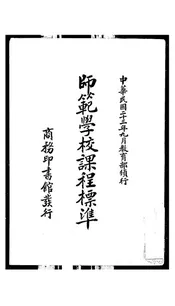 中華民國二十三年九月教育部頒行
師範學校課程標準
商務印書館發行